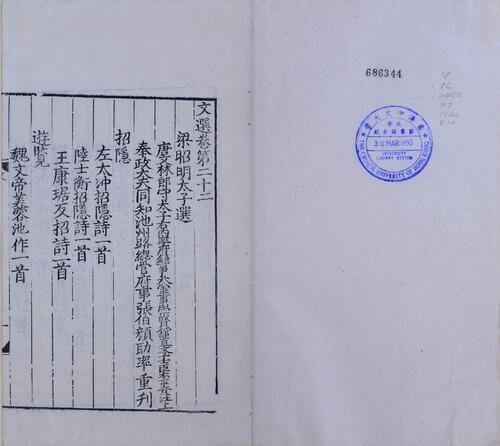 文選卷第二十二
梁昭明太子選
唐文林郎守太子右內率府錄事參軍事崇賢館直學士臣李善注上
奉政大夫同知池州路總管府事張伯顏助率重刊
招隱
左太沖招隱詩一首
陸士衡招隱詩一首
王康琚反招詩一首
遊覽
魏文帝芙蓉池作一首
686344
香港中文大學
大學
圖書館系統
30 MAR 1993
UNIVERSITY
LIBRARY SYSTEM
THE CHINESE UNIVERSITY OF HONG KONG